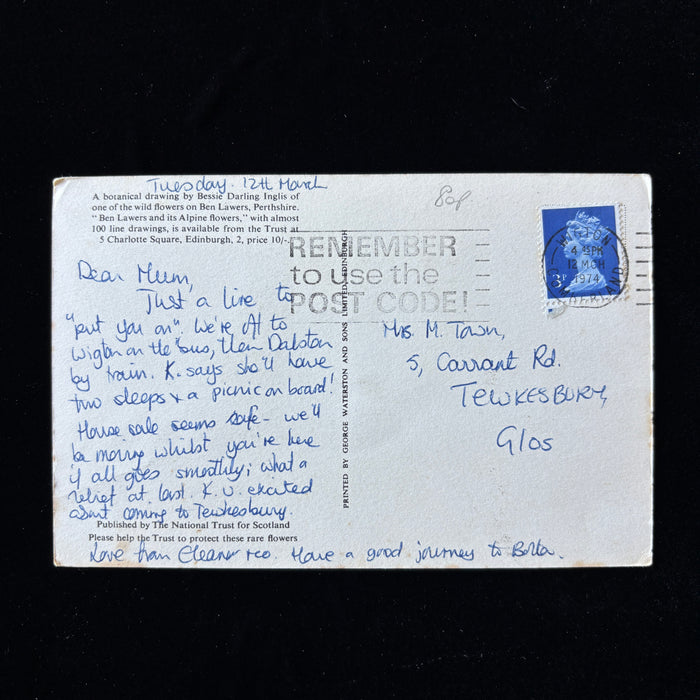 Tuesday. 12th March
A botanical drawing by Bessie Darling Inglis of
one of the wild flowers on Ben Lawers, Perthshire.
"Ben Lawers and its Alpine flowers," with almost
100 line drawings, is available from the Trust at
5 Charlotte Square, Edinburgh, 2, price 10/-.
Dear Mum,
Just a line to
"put you on". We're
to
Wigton on the bus, then Dalston
by train. K. says she'll have
two sleeps & a picnic on board!
House sale seems safe - we'll
be moving whilst you're here
if all goes smoothly; what a
relief at last. K. v. excited
about coming to Tewkesbury.
Published by The National Trust for Scotland
Please help the Trust to protect these rare flowers
Love from Eleanor & co. Have a good journey to
PRINTED BY GEORGE WATERSTON AND SONS LIMITED, EDINBURGH
80p
REMEMBER
to use the
POST CODE!
WIGTON
4 PM
12 MCH
1974
CUMBERLAND
3P
Mrs. M. Town,
5, Carrant Rd.
TEWKESBURY,
Glos